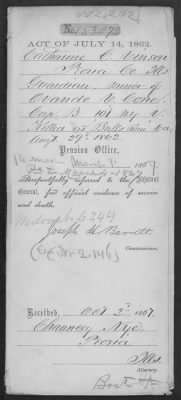 202,292
No. 153673
ACT OF JULY 14, 1862.
Catharine C. Vinson
Peoria Co. Ills
Guardian, minor of
Orando V. Cone
Cap. B 101 Ny V
Killed at Battle
Aug 29th 1862.
Pension Office,
March 7 1867
Respectfully referred to the Adjutant
General, for official evidence of service
and death.
Joseph H Barrett
Commissioner.
Received, Oct 2d 1867.
Chauncey Nye
Peoria
Ills.
Attorney.